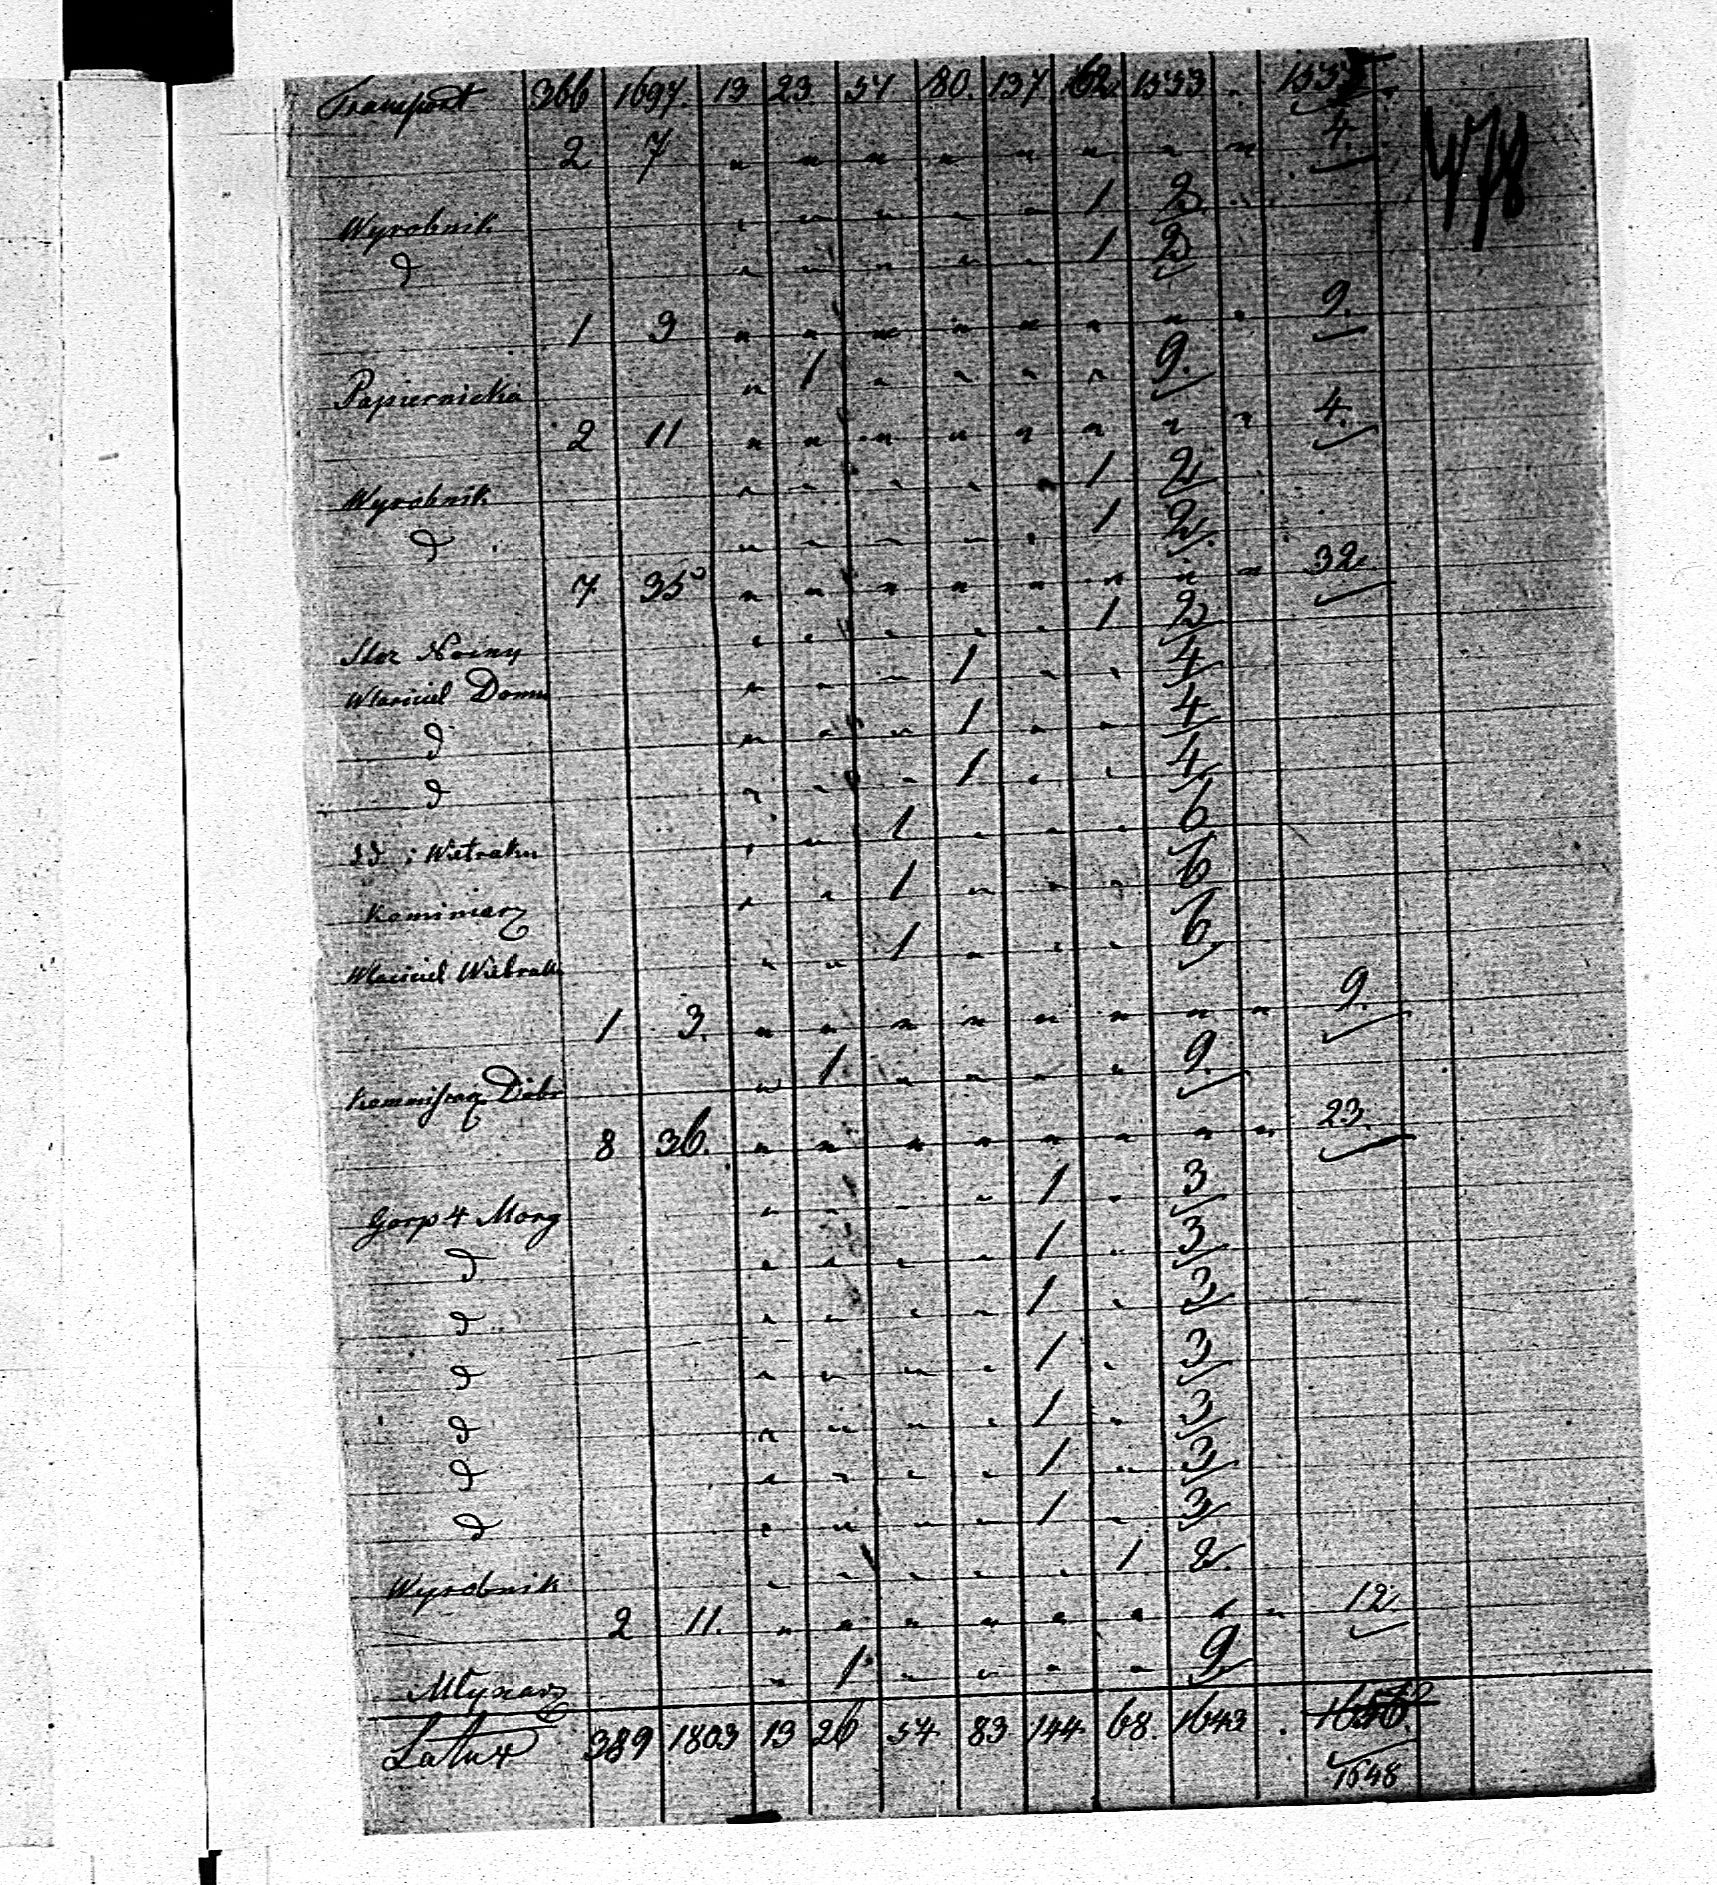 Transport 366 1697. 13 23. 51 80. 137 62 1553 . 155
478
2 7 " " " " " " " " 4.
Wyrobnik " " " " " 1 2
d " " " " " 1 2
1 3 " " " " " " " " 9.
Papiernicka " 1 " " " " 9.
2 11 " " " " " " " " 4.
Wyrobnik " " " " " 1 2
d " " " " " 1 2
7 35 " " " " " " " " 32
Stoz Nocny " " " " " 1 2
Wlasciciel Domu " " " 1 " " 4
d " " " 1 " " 4
d " " " 1 " " 4
dd i Wiatraku " " 1 " " " 6
Kominiarz " " 1 " " " 6
Wlasciciel Wiatraku " " 1 " " " 6
1 3. " " " " " " " " 9.
Kommissarz Dóbr " 1 " " " " 9.
8 36. " " " " " " " " 23.
Gosp 4 Morg " " " " 1 " 3
d " " " " 1 " 3
d " " " " 1 " 3
d " " " " 1 " 3
d " " " " 1 " 3
d " " " " 1 " 3
d " " " " 1 " 3
Wyrobnik " " " " " 1 2
2 11. " " " " " " " " 12
Młynarz " 1 " " " " 9
Latus 389 1803 13 26 54 83 144 68. 1643 .
1648